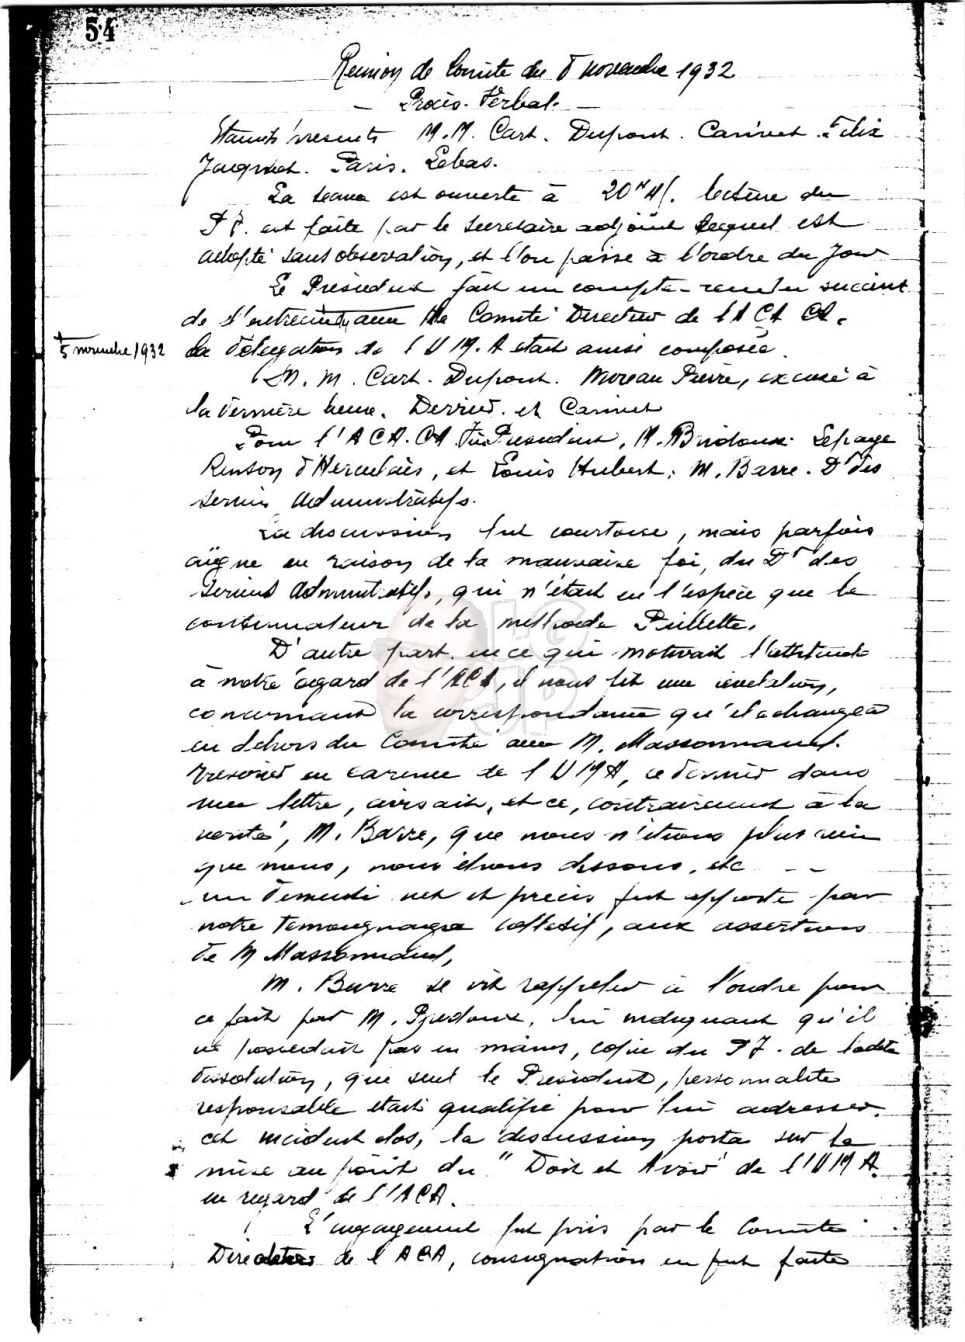 54
Reunion de Comité du 8 novembre 1932
— Procès-Verbal. —
Etaients présents M.M. Cart. Dupont. Carinet. Félix
Jacquet. Paris. Lebas.
La séance est ouverte à 20 H. lecture du
P.V. est faite par le secrétaire adjoint lequel est
adopté sans observation, et l'on passe à l'ordre du jour
Le Président fait un compte-rendu succint
de l'entrevue avec le Comité Directeur de l'ACA
5 novembre 1932
La délégation de l'UMA était ainsi composée.
M.M. Cart. Dupont. Moreau Pierre, excusé à
la dernière heure. Derrien. et Carinet
Pour l'ACA. Président, M. Bridoux. Lepage
Renson d'Herculais, et Louis Hubert. M. Barre. Dr des
services administratifs.
La discussion fut courtoise, mais parfois
aigue en raison de la mauvaise foi, du Dr des
Services administratifs, qui n'était en l'espèce que le
continuateur de la méthode
D'autre part, en ce qui motivait l'attitude
à notre égard de l'ACA, il nous fit une révélation,
concernant la correspondance qu'il échangea
en dehors du Comité avec M. Massonnaud.
trésorier en carence de l'UMA, ce dernier dans
une lettre, avisait, et ce, contrairement à la
vérité, M. Barre, que nous n'étions plus rien
que nous, nous étions dissous, etc - -
un démenti net et précis fut apporté par
notre témoignage collectif, aux assertions
de M Massonnaud,
M. Barre se vit rappeler à l'ordre pour
ce fait par M. Bridoux, lui indiquant qu'il
ne possédait pas en mains, copie du P.V. de ladite
dissolution, que seul le Président, personnalité
responsable était qualifié pour lui adresser.
cet incident clos, la discussion porta sur la
mise au point du "Doit et Avoir" de l'UMA
en regard de l'ACA.
L'engagement fut pris par le Comité
Directeur de l'ACA, consignation en fut faite